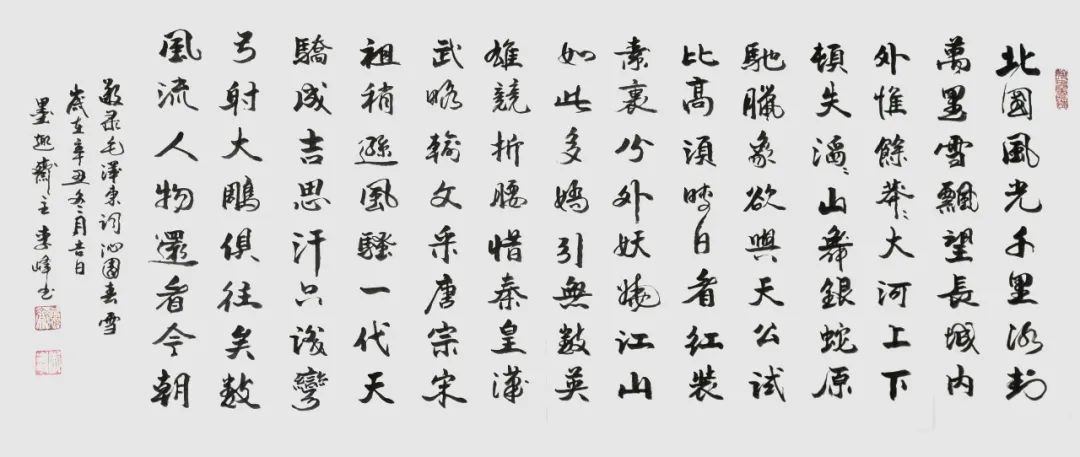 北國風光千里冰封
萬里雪飄望長城內
外惟餘莽々大河上下
頓失滔々山舞銀蛇原
馳臘象欲與天公試
比高須晴日看紅裝
素裹分外妖嬈江山
如此多嬌引無數英
雄競折腰惜秦皇漢
武略輸文采唐宗宋
祖稍遜風騷一代天
驕成吉思汗只識彎
弓射大鵰俱往矣數
風流人物還看今朝
敬录毛澤東詞沁園春雪
歲在辛丑冬月吉日
墨齋主李峰书